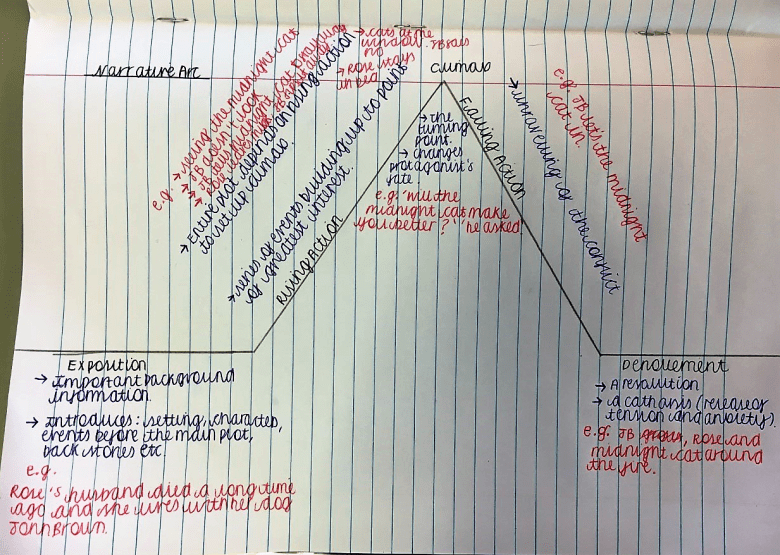 Narrative Arc
Climax
→ cats at the
window. JB says
no
→ Rose stays
in bed
e.g. → seeing the midnight cat
→ JB doesn't look
→ Entire plot depends on rising action
to set up climax.
→ series of events building up to point
of greatest interest.
Rising Action
→ the
turning
point.
→ changes
protagonist's
fate
e.g. "will the
midnight cat make
you better?" he asked.
Falling Action
→ unravelling of the conflict
e.g. JB let's the midnight
cat in.
Exposition
→ Important background
information.
→ Introduces: setting, characters,
events before the main plot,
back stories etc.
e.g.
Rose's husband died a long time
ago and she lives with her dog
John Brown.
Denouement
→ A resolution
→ a catharsis (release of
tension and anxiety).
e.g. JB, Rose and
midnight cat around
the fire.